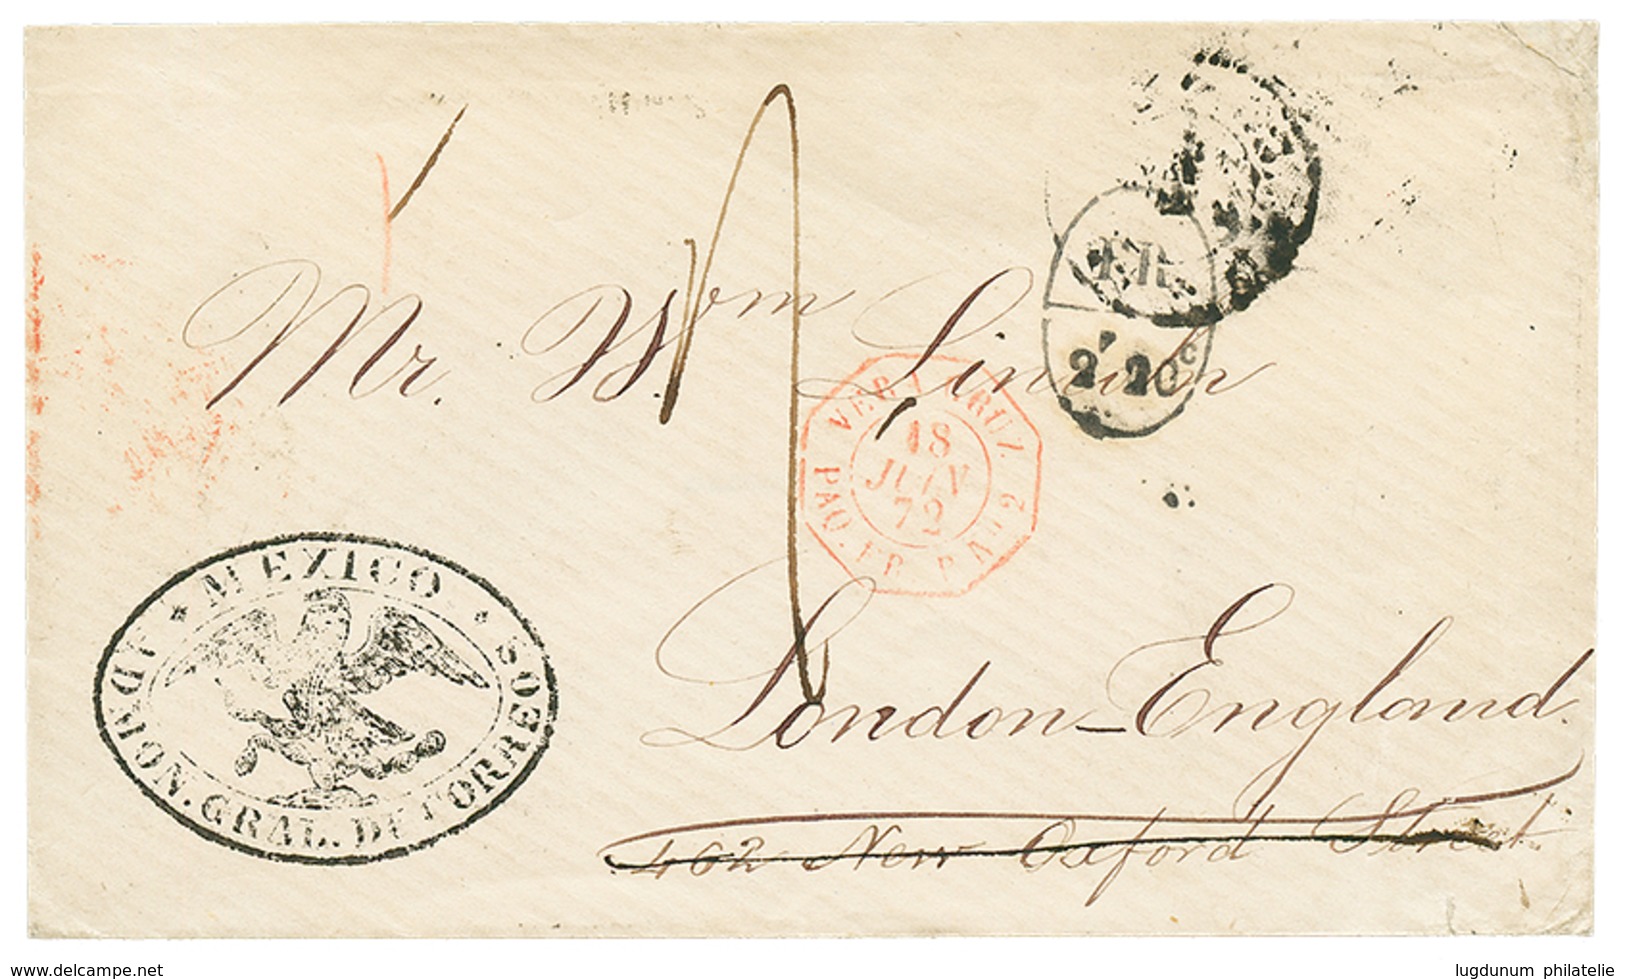 Mr. Wm. Lincoln
London - England.
462 New Oxford Street
MEXICO
ADMON. GRAL. DE CORREOS
VERA CRUZ
18
JUIN
72
PAQ. FR. B Nº 2
FR.
2f 20c
www.delcampe.net
lugdunum philatelie